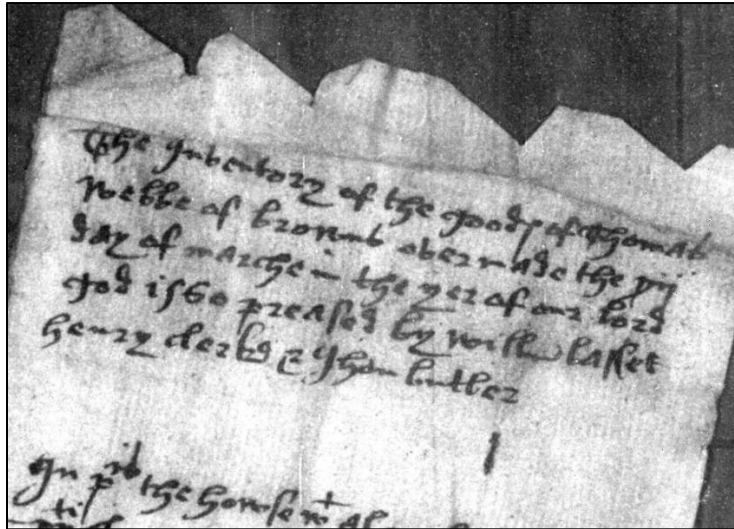 The Inventory of the goods of Thomas
Webbe of browns over made the xiij
day of marche in the yer of our lord
god 1560 preased by willm lasket
henry clerke & Jhon butler
In p the howse wt al